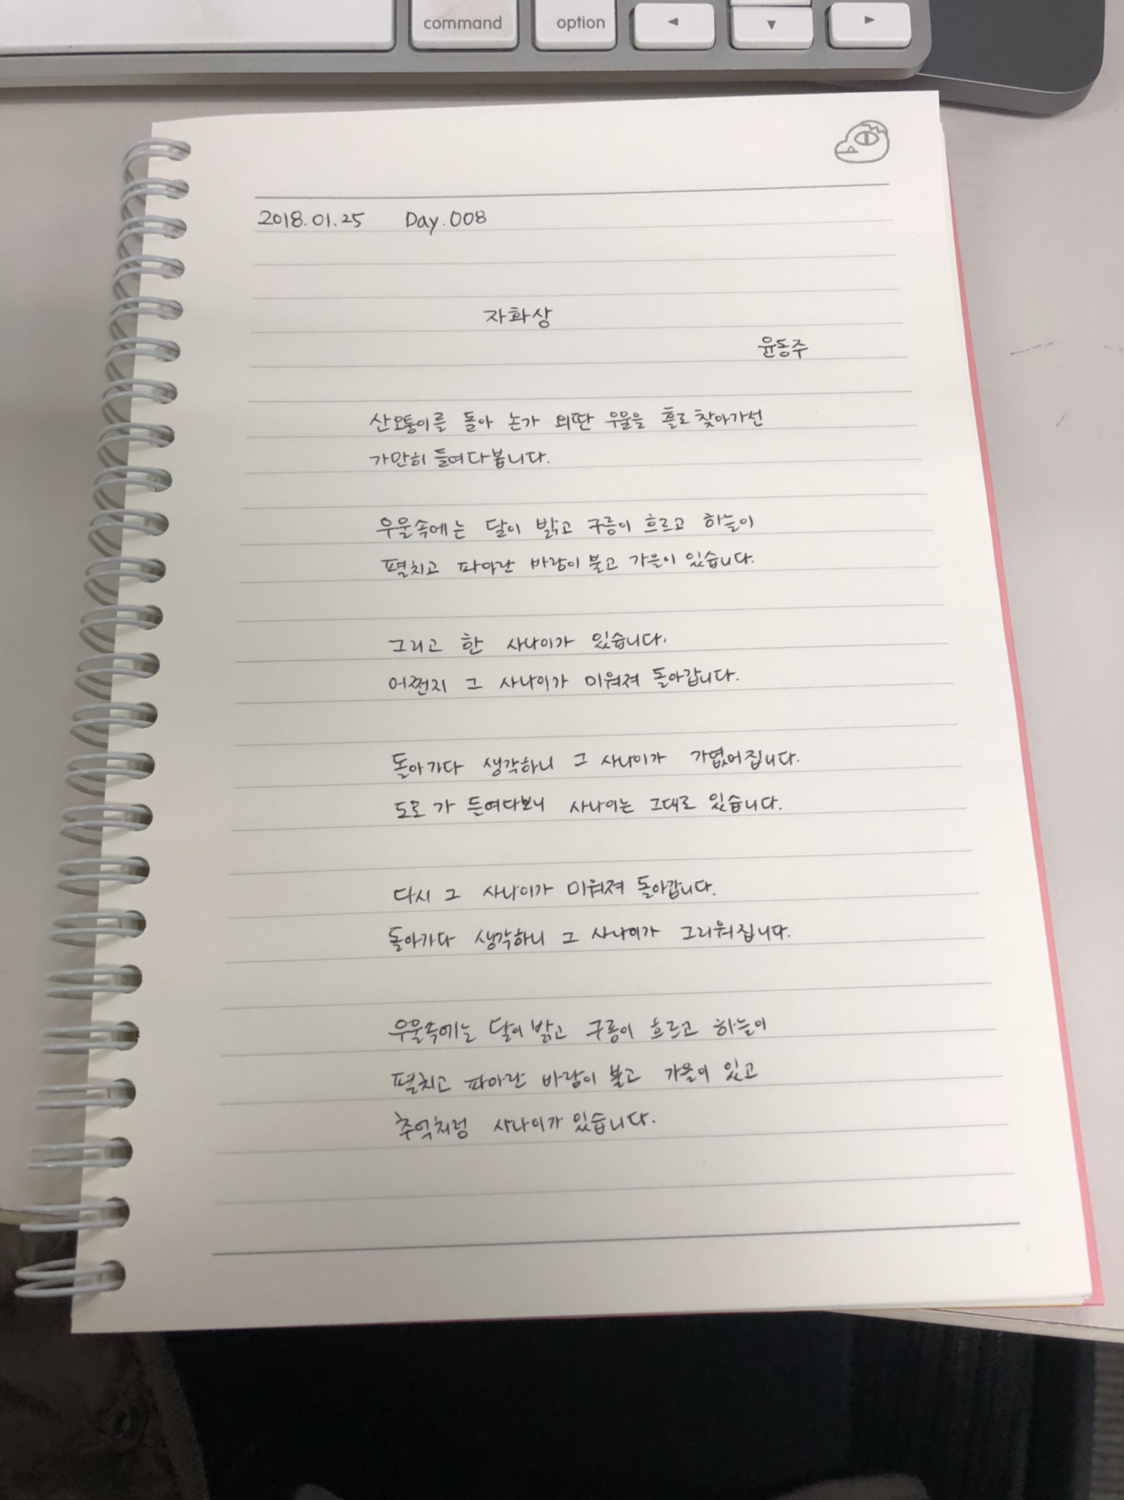 command option ◀ ▼ ▶
2018.01.25 Day.008
자화상
윤동주
산모퉁이를 돌아 논가 외딴 우물을 홀로 찾아가선
가만히 들여다봅니다.
우물속에는 달이 밝고 구름이 흐르고 하늘이
펼치고 파아란 바람이 불고 가을이 있습니다.
그리고 한 사나이가 있습니다.
어쩐지 그 사나이가 미워져 돌아갑니다.
돌아가다 생각하니 그 사나이가 가엾어집니다.
도로 가 들여다보니 사나이는 그대로 있습니다.
다시 그 사나이가 미워져 돌아갑니다.
돌아가다 생각하니 그 사나이가 그리워집니다.
우물속에는 달이 밝고 구름이 흐르고 하늘이
펼치고 파아란 바람이 불고 가을이 있고
추억처럼 사나이가 있습니다.